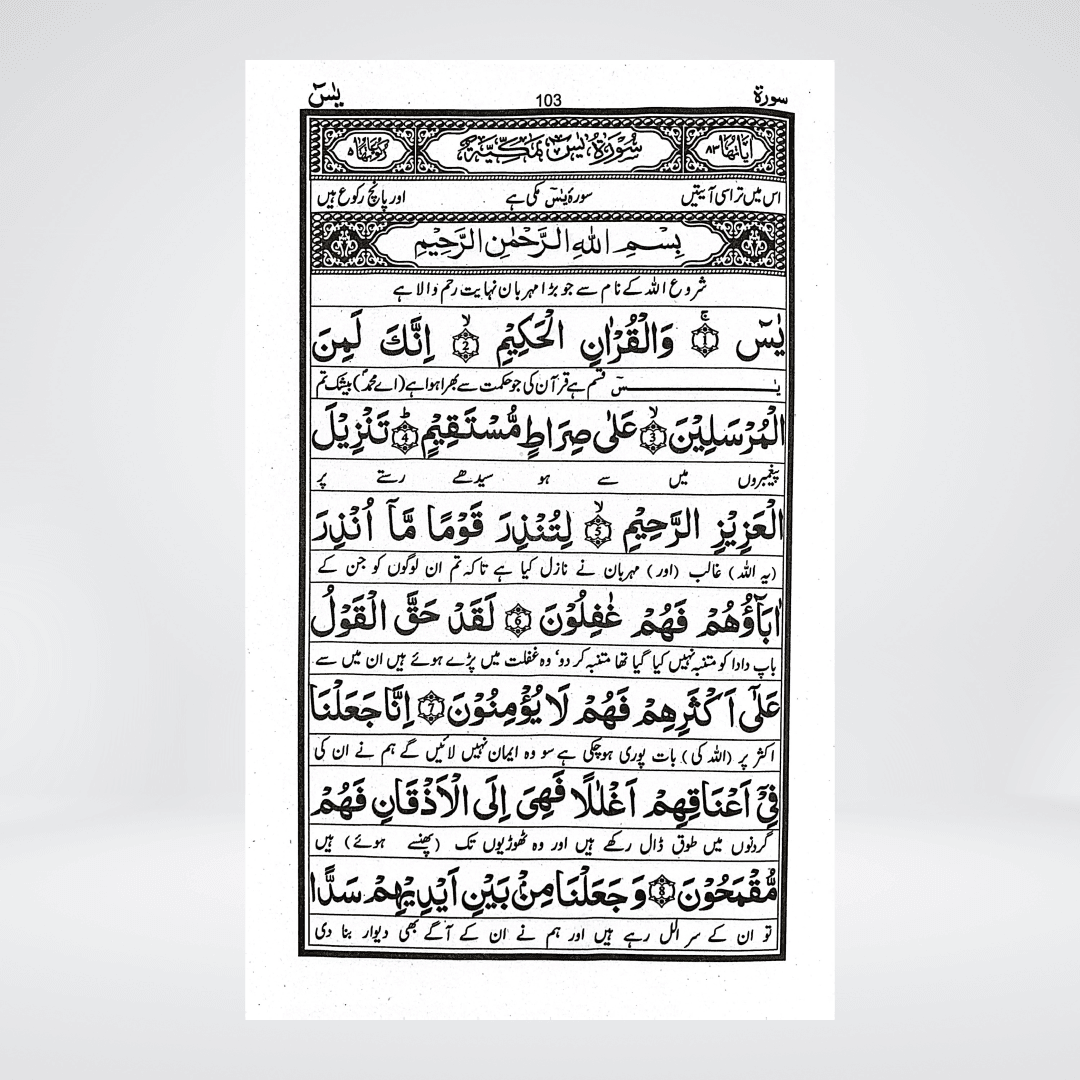 سورة 103 يٰسٓ
اٰيَاتُهَا ٨٣ سُوْرَةُ يٰسٓ مَكِّيَّةٌ رُكُوْعَاتُهَا ٥
اس میں تراسی آیتیں سورۂ یٰسٓ مکی ہے اور پانچ رکوع ہیں
بِسْمِ اللهِ الرَّحْمٰنِ الرَّحِيْمِ
شروع اللہ کے نام سے جو بڑا مہربان نہایت رحم والا ہے
يٰسٓ ۚ 1 وَالْقُرْاٰنِ الْحَكِيْمِ ۙ 2 اِنَّكَ لَمِنَ
یٰسٓ قسم ہے قرآن کی جو حکمت سے بھرا ہوا ہے (اے محمدؐ) بیشک تم
الْمُرْسَلِيْنَ ۙ 3 عَلٰى صِرَاطٍ مُّسْتَقِيْمٍ ؕ 4 تَنْزِيْلَ
پیغمبروں میں سے ہو سیدھے رستے پر
الْعَزِيْزِ الرَّحِيْمِ ۙ 5 لِتُنْذِرَ قَوْمًا مَّآ اُنْذِرَ
(یہ اللہ) غالب (اور) مہربان نے نازل کیا ہے تاکہ تم ان لوگوں کو جن کے
اٰبَآؤُهُمْ فَهُمْ غٰفِلُوْنَ 6 لَقَدْ حَقَّ الْقَوْلُ
باپ دادا کو متنبہ نہیں کیا گیا تھا متنبہ کر دو‘ وہ غفلت میں پڑے ہوئے ہیں ان میں سے
عَلٰٓى اَكْثَرِهِمْ فَهُمْ لَا يُؤْمِنُوْنَ 7 اِنَّا جَعَلْنَا
اکثر پر (اللہ کی) بات پوری ہوچکی ہے سو وہ ایمان نہیں لائیں گے ہم نے ان کی
فِيْٓ اَعْنَاقِهِمْ اَغْلٰلًا فَهِيَ اِلَى الْاَذْقَانِ فَهُمْ
گردنوں میں طوق ڈال رکھے ہیں اور وہ ٹھوڑیوں تک (پھنسے ہوئے) ہیں
مُّقْمَحُوْنَ 8 وَجَعَلْنَا مِنْۢ بَيْنِ اَيْدِيْهِمْ سَدًّا
تو ان کے سر الل رہے ہیں اور ہم نے ان کے آگے بھی دیوار بنا دی